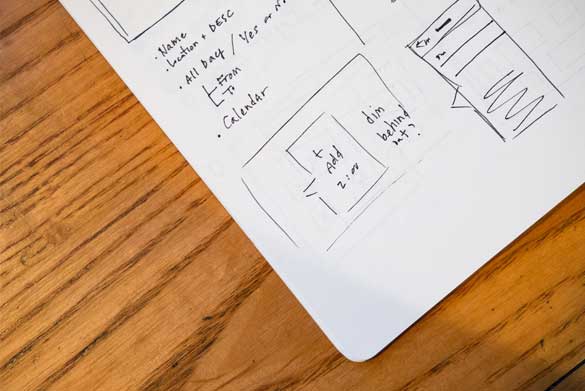 • Name
• Location + DESC
• All Day / Yes or No
From
To
• Calendar
+
Add
2:00
dim
behind